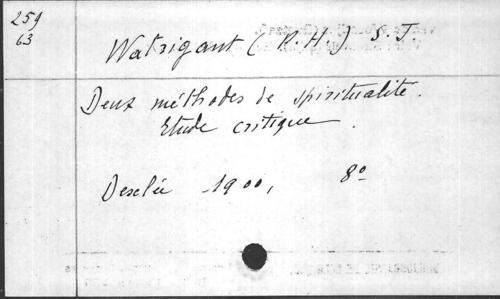 259
63
Watrigant (P. H.) S. J.
Deux méthodes de spiritualité.
Etude critique.
Desclée 1900, 8º